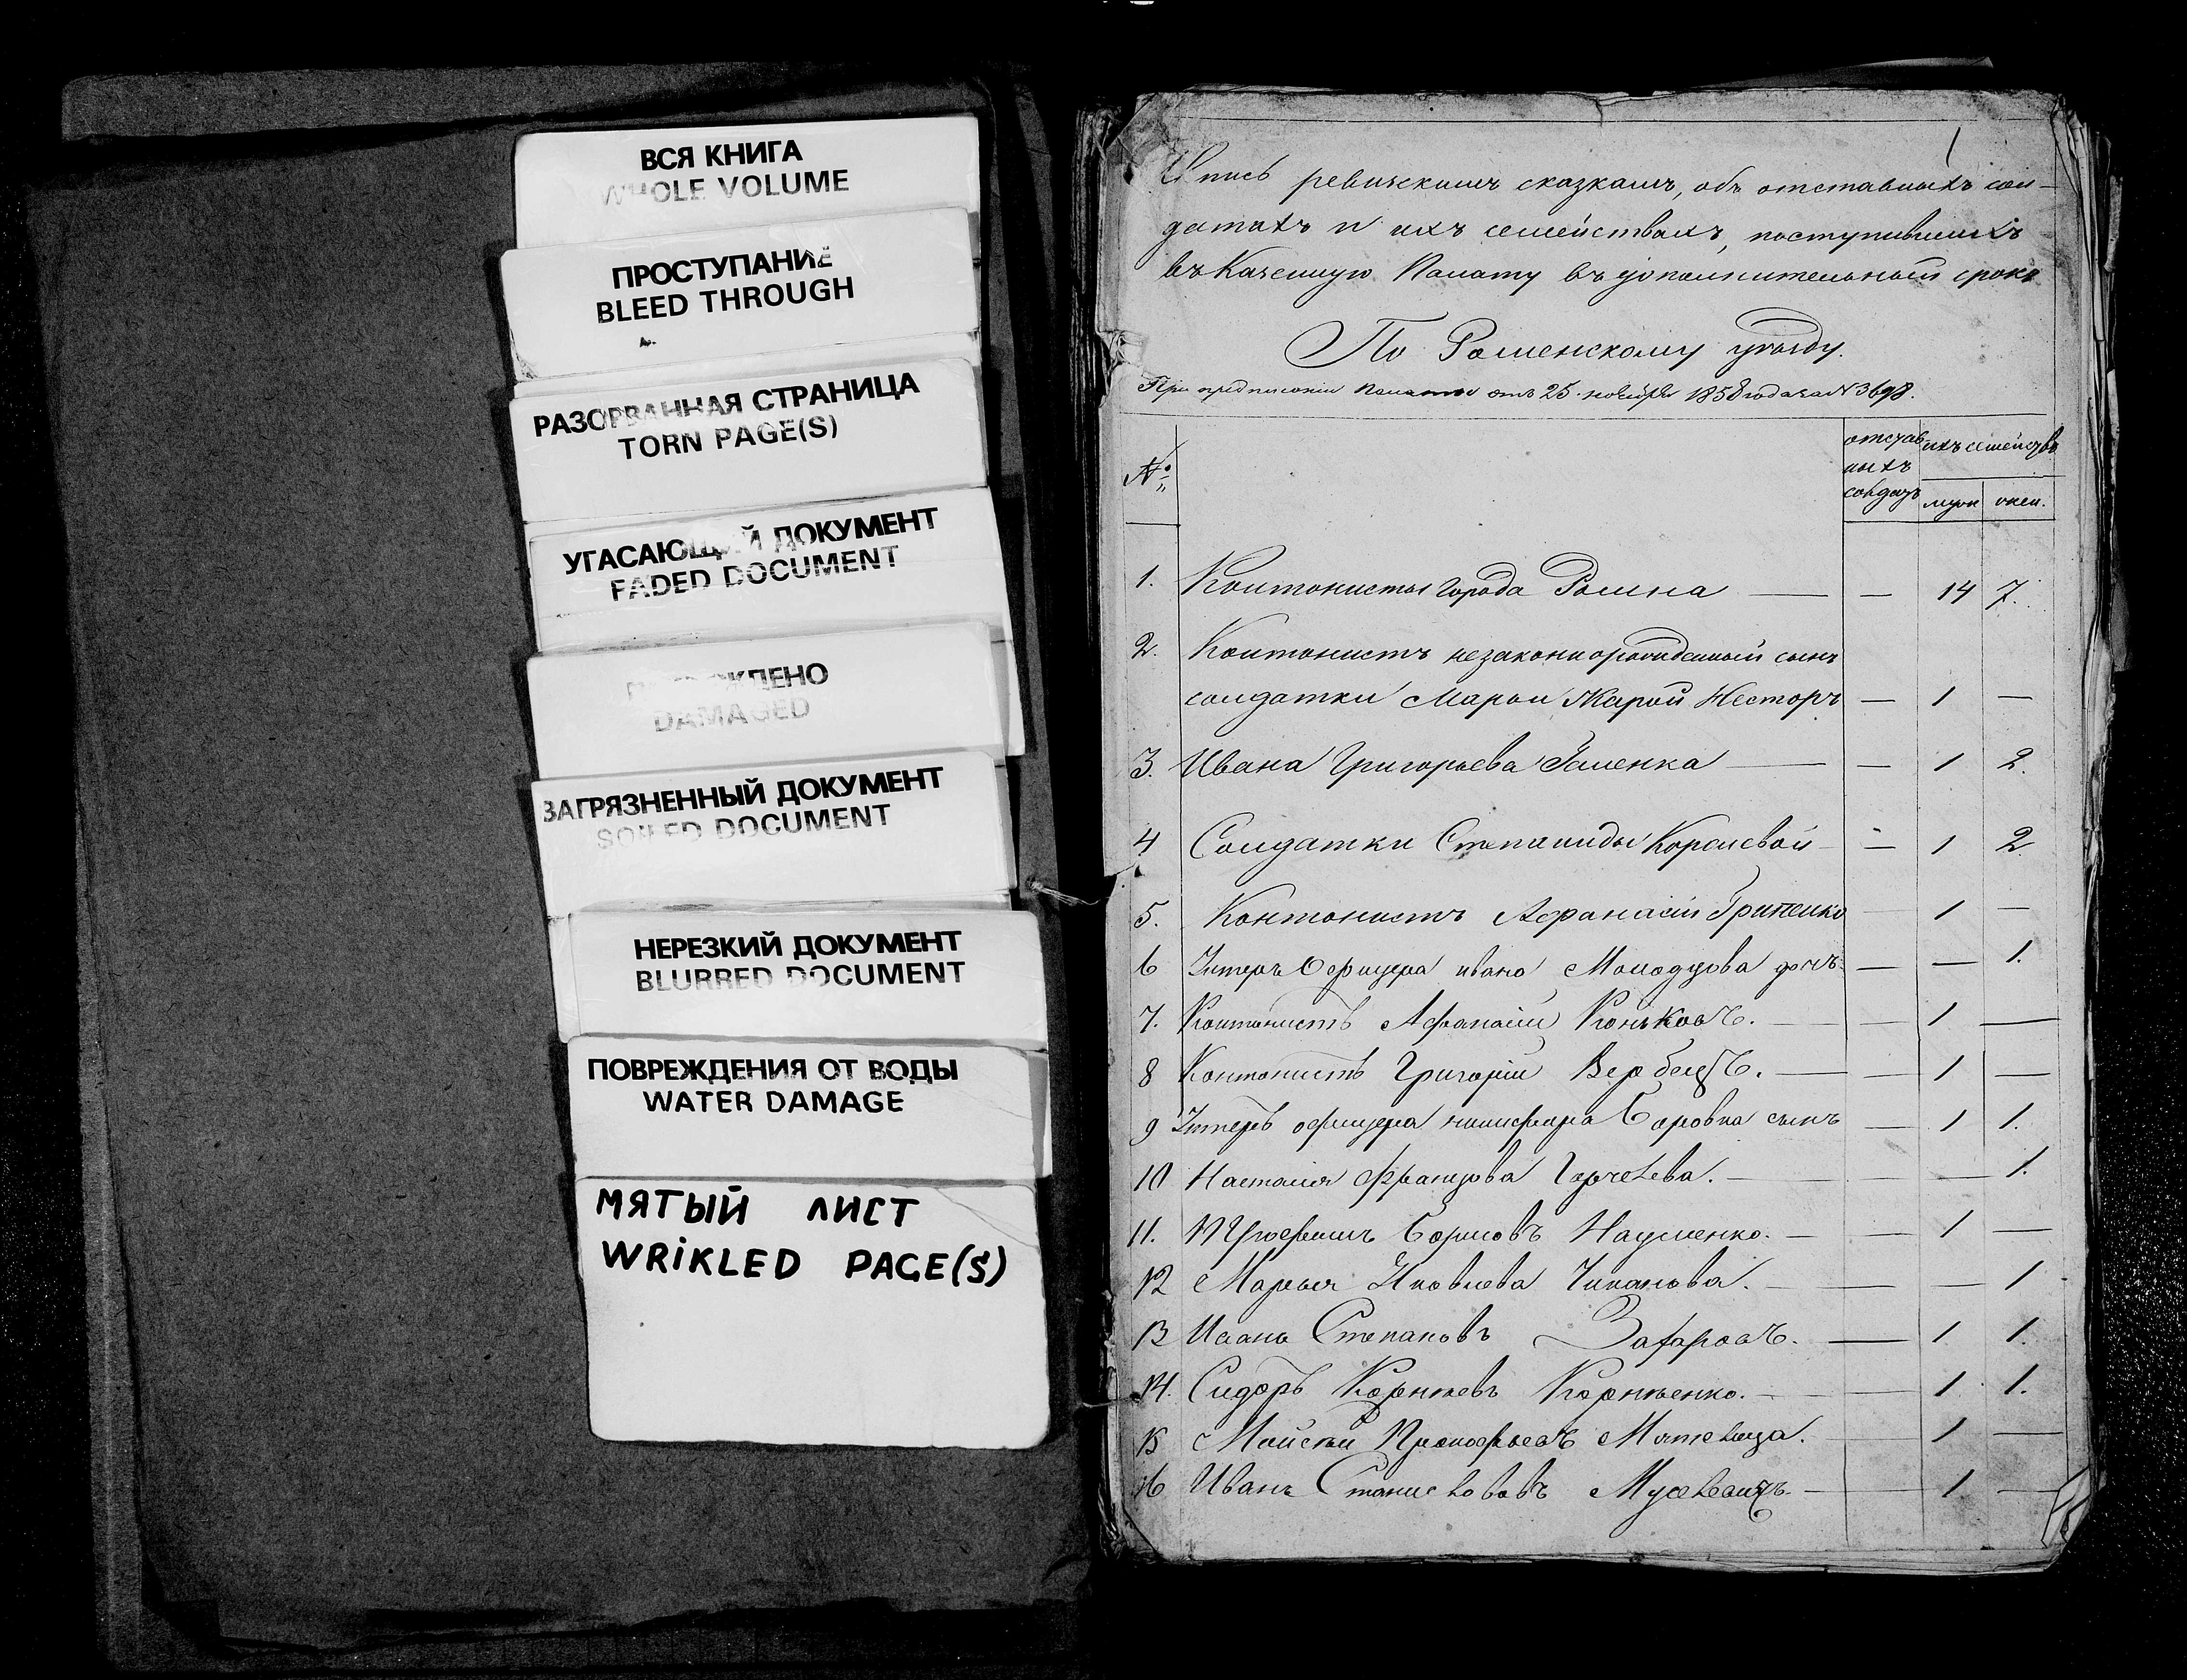 ВСЯ КНИГА
WHOLE VOLUME
ПРОСТУПАНИЕ
BLEED THROUGH
РАЗОРВАННАЯ СТРАНИЦА
TORN PAGE(S)
УГАСАЮЩИЙ ДОКУМЕНТ
FADED DOCUMENT
ПОВРЕЖДЕНО
DAMAGED
ЗАГРЯЗНЕННЫЙ ДОКУМЕНТ
SOILED DOCUMENT
НЕРЕЗКИЙ ДОКУМЕНТ
BLURRED DOCUMENT
ПОВРЕЖДЕНИЯ ОТ ВОДЫ
WATER DAMAGE
МЯТЫЙ ЛИСТ
WRiKLED PAGE(S)
1
Опись ревизскимъ сказкамъ, объ отставныхъ сол-
датахъ и ихъ семействахъ, поступившихъ
въ Казенную Палату въ дополнительный срокъ
По Роменскому уѣзду.
При предписаніи Палаты отъ 25 ноября 1858 года за N 3698.
№ отстав ныхъ солдатъ ихъ семейство муж жен.
1. Контонисты города Ромна — — 14 7.
2. Контонистъ незаконнорожденный сынъ
солдатки Марьи Несторъ — 1 —
3. Ивана Григорьева — — 1 2.
4 Солдатки Степаниды Королевой — 1 2.
5. Контонистъ Афанасій Грипенко — 1 —
6 Унтеръ Офицера Ивана Молодцова дочь — — 1.
7. Контонистъ Афанасій Коньковъ. — — 1 —
8 Контонистъ Григорій — — 1 —
9 Унтеръ офицера Никифора Боровка сынъ — 1 1.
10 Наталія Францова — — — 1.
11. Трофимъ Борисовъ Науменко. — — 1 —
12 Марья Яковлева Чиканова. — — — 1
13 Иванъ Степановъ Захаровъ. — 1 1.
14. Сидоръ Корнѣевъ Корнѣенко. — — 1 1.
15 Мойсей Прокофьевъ — 1 —
16 Иванъ Станиславовъ — — 1 —